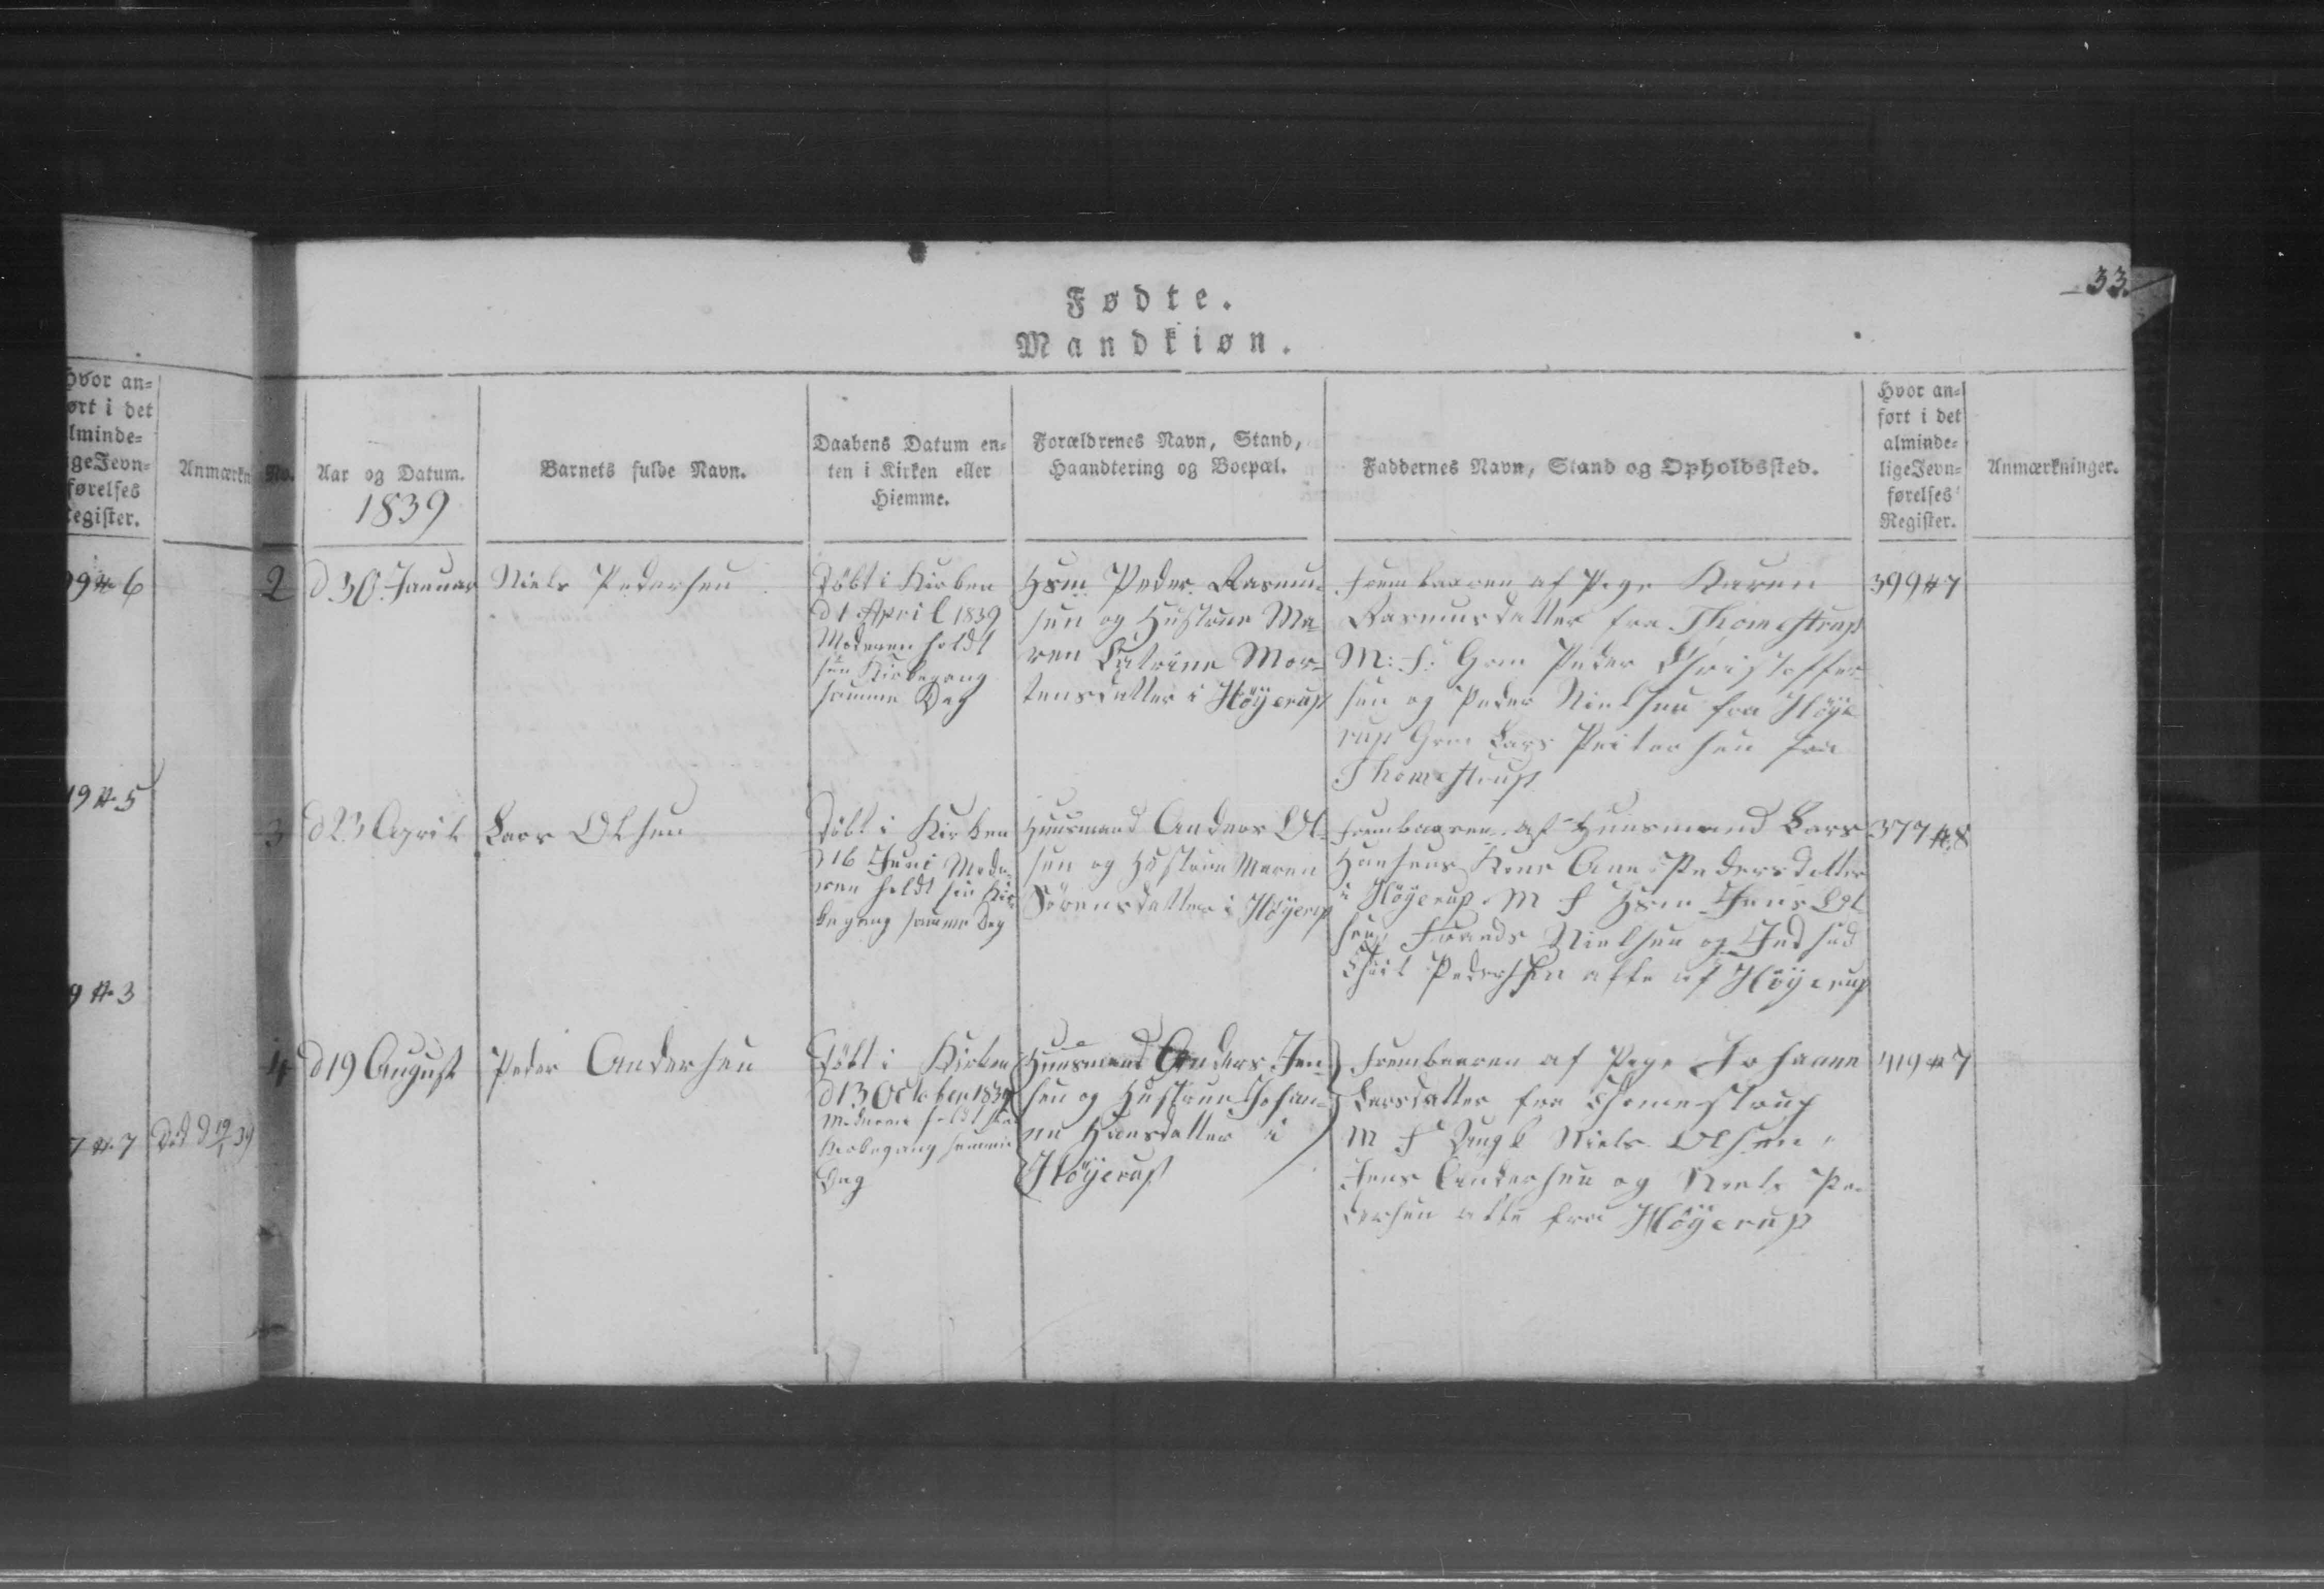 33.
Fødte.
Mandkiøn.
Hvor an=
ørt i det
lminde=
igeJevn=
førelses
Register.
Anmærkn
No.
Aar og Datum.
1839
Barnets fulde Navn.
Daabens Datum en=
ten i Kirken eller
Hiemme.
Forældrenes Navn, Stand,
Haandtering og Boepæl.
Faddernes Navn, Stand og Opholdssted.
Hvor an=
ført i det
alminde=
ligeJevn=
førelses
Register.
Anmærkninger.
99 # 6
19 # 5
9 # 3
7 # 7
Död d 19/ 39
2
d 30. Januar
Niels Pedersen
Döbt i Kirken
d 1 April 1839
Moderen holdt
sin Kirkegang
samme Dag
Hsm Peder Rasmu-
sen og Hustrue Ma-
ren Catrine Mor-
tensdatter i Höÿerup
Frembaaren af Pige Karen
Rasmusdatter fra Thomestrup
M: F: Grm Peder Christoffer-
sen og Peder Nielsen fra Höÿe-
rup Grm Lars Peitersen fra
Thomestrup
399 # 7
3
d 23 April
Lars Olsen
Döbt i Kirken
d 16 Juni Mode-
ren holdt sin Kir-
kegang samme Dag
Huusmand Anders Ol-
sen og Hustrue Maren
Sörensdatter i Höÿerup
Frembaaren af Huusmand Lars
Hansens Kone Ane Pedersdatter
i Höÿerup M F Hsm Jens Ol-
sen Frands Nielsen og Indsid
Pedersen alle af Höÿerup
377 # 8
4
d 19 August
Peder Andersen
Döbt i Kirken
d 13 October 1839
Moderen holdt sin
Kirkegang samme
Dag
Huusmand Anders Jen-
sen og Hustrue Johan-
ne Hansdatter i
Höÿerup
Frembaaren af Pige Johanne
Larsdatter fra Thomestrup
M F Ungk Niels Olsen
Jens Andersen og Niels Pe-
dersen alle fra Höÿerup
419 # 7